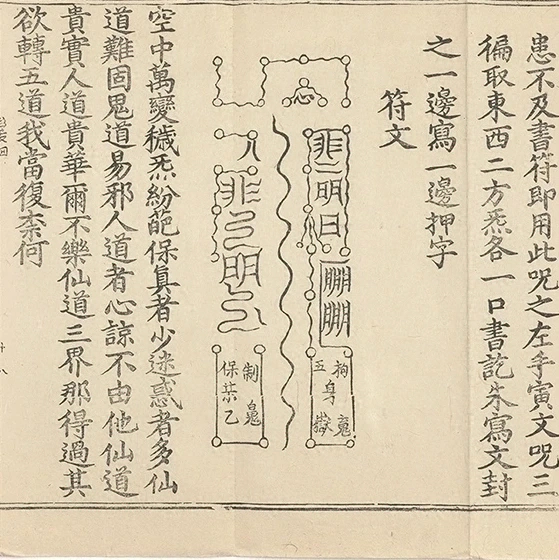 患不及書符即用此呪之左手寅文呪三
徧取東西二方炁各一口書訖朱寫文封
之一邊寫一邊押字
符文
心
拘魂
五身
制鬼
保某乙
空中萬變穢炁紛葩保真者少迷惑者多仙
道難固鬼道易邪人道者心諒不由他仙道
貴實人道貴華爾不樂仙道三界那得過其
欲轉五道我當復柰何